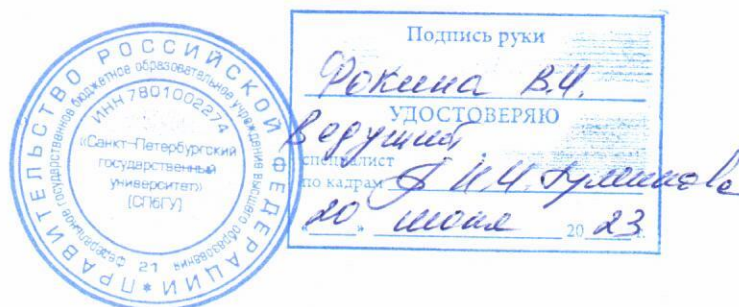 ПРАВИТЕЛЬСТВО РОССИЙСКОЙ ФЕДЕРАЦИИ *
федеральное государственное бюджетное образовательное учреждение высшего образования
21
ИНН 7801002274
«Санкт-Петербургский
государственный
университет»
(СПбГУ)
Подпись руки
Фокина В.И.
УДОСТОВЕРЯЮ
Ведущий
специалист
по кадрам И.И.
20 июня 20 23